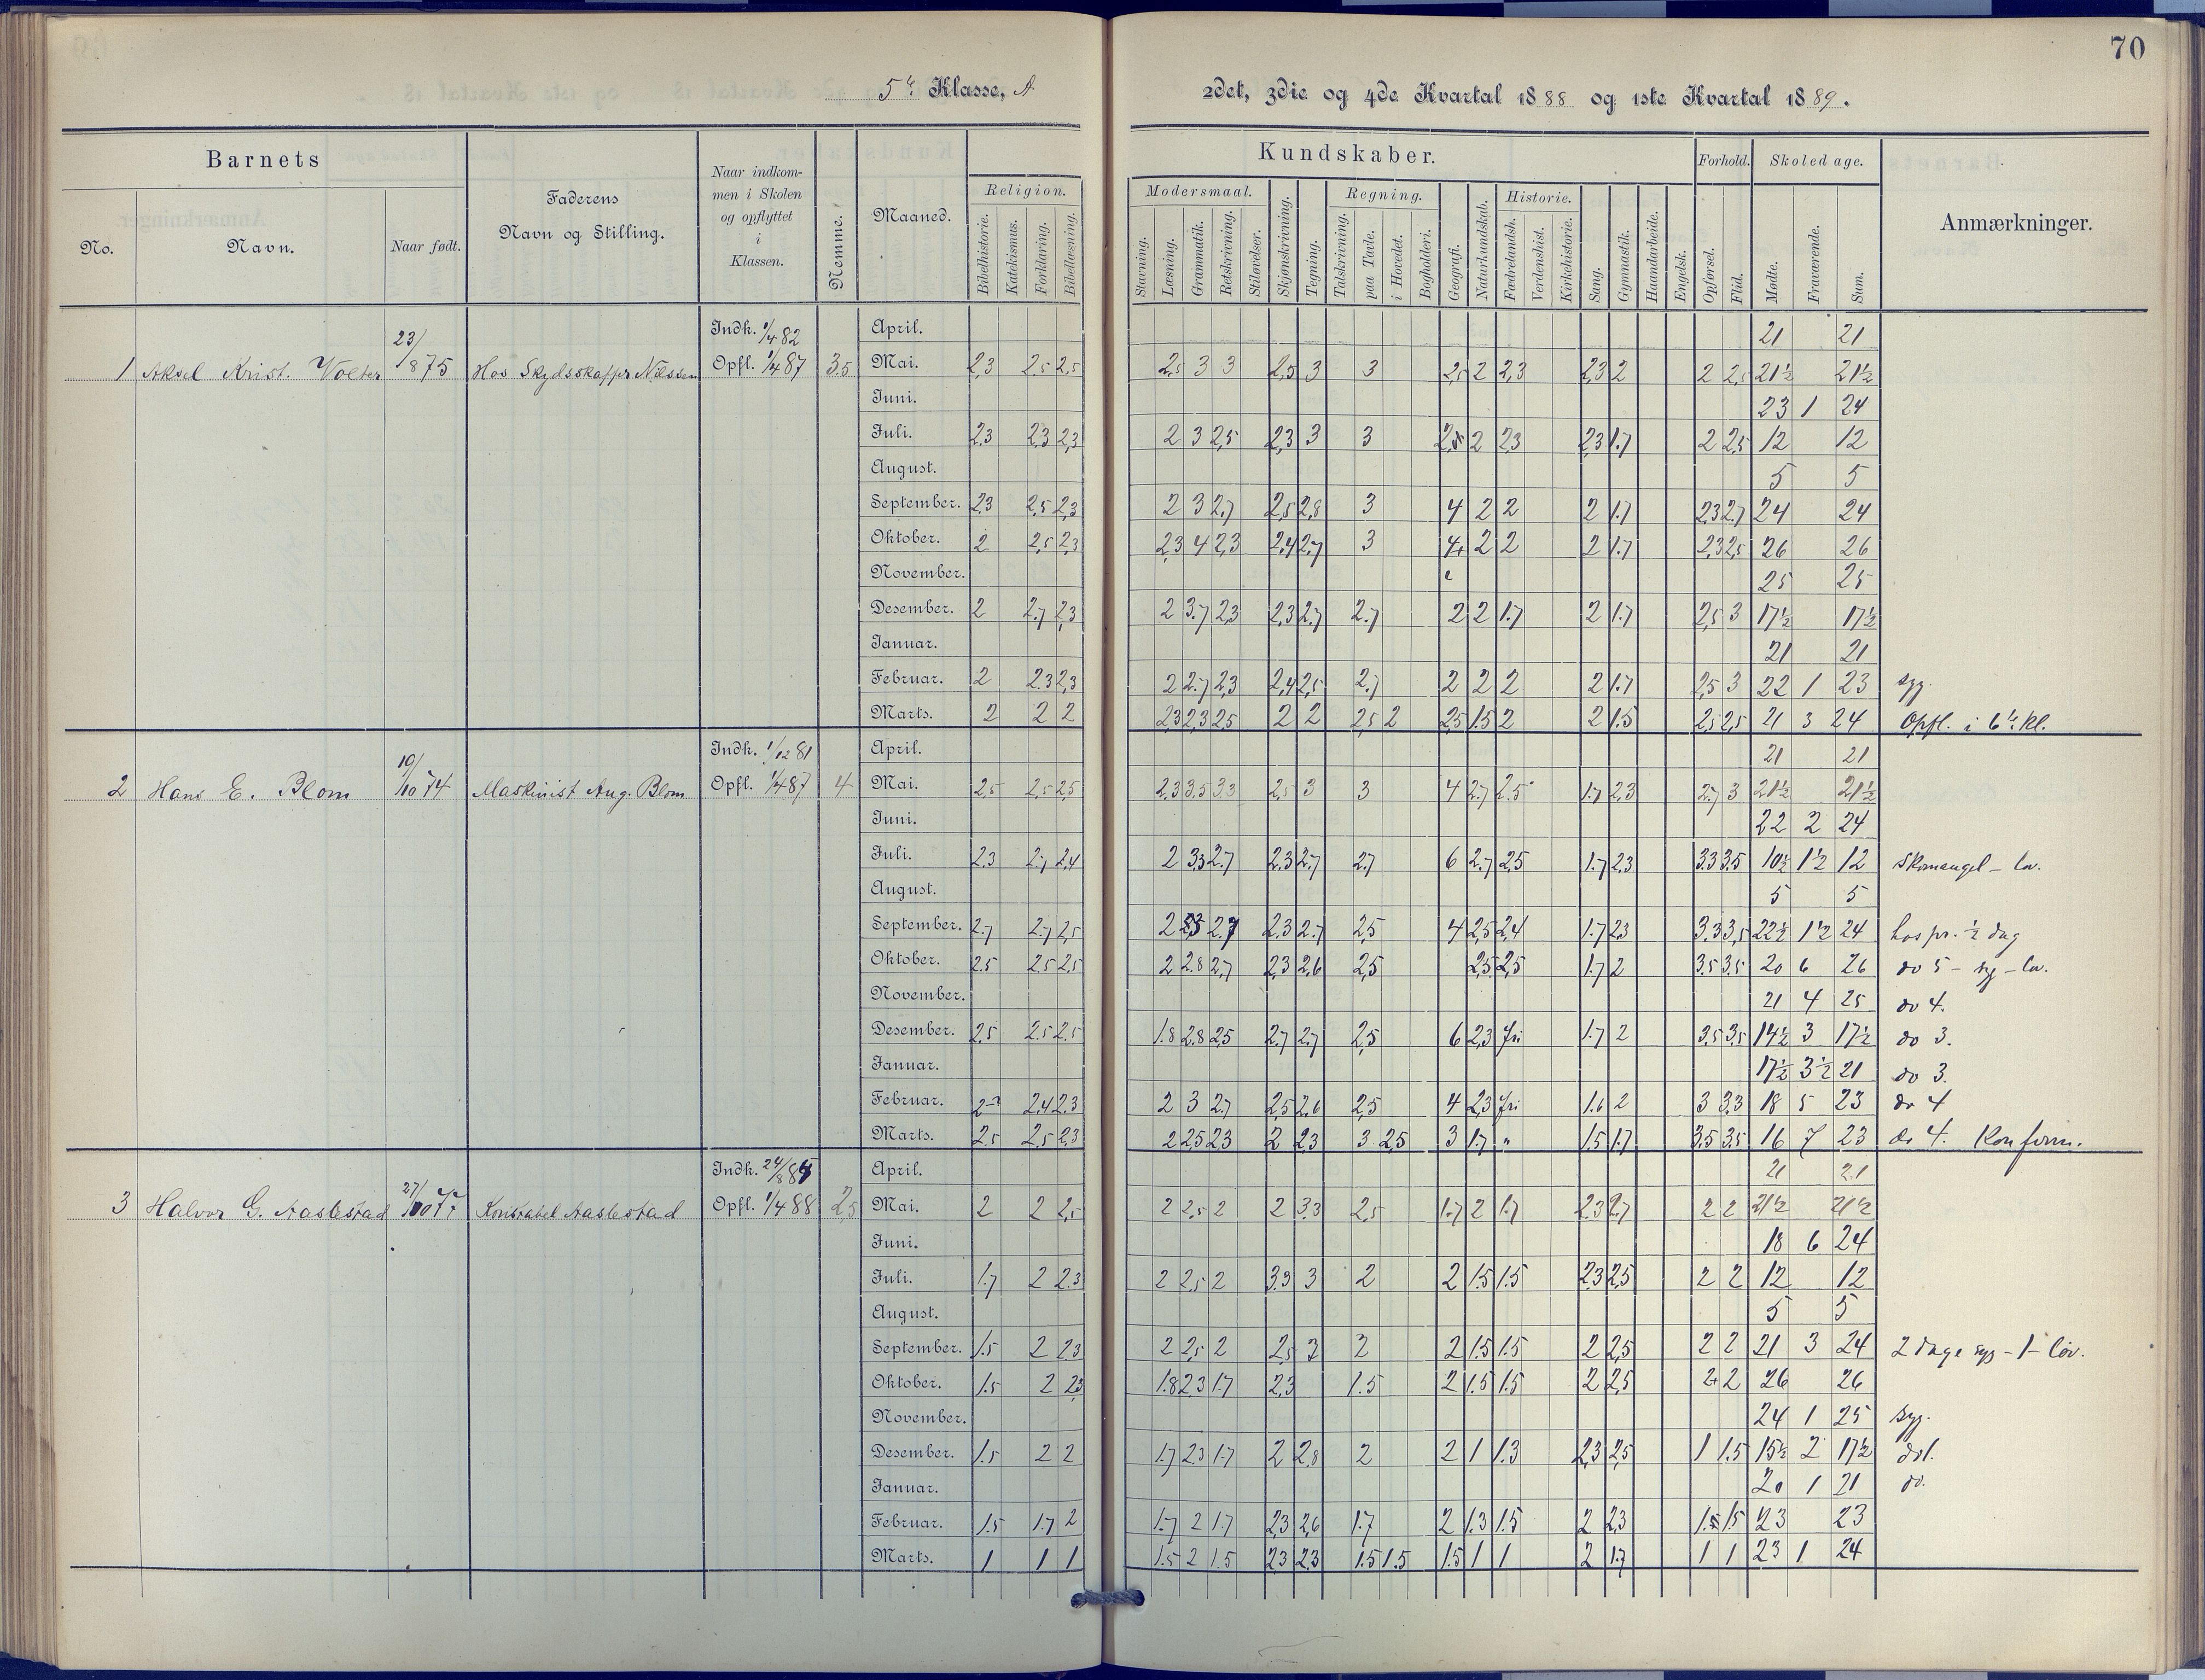 70
5te Klasse, A
2det, 3die og 4de Kvartal 1888 og 1ste Kvartal 1889.
Barnets
No. Navn. Naar født.
Faderens Navn og Stilling.
Naar indkommen i Skolen og opflyttet i Klassen.
Nemme.
Maaned.
Kundskaber.
Religion.
Bibelhistorie. Katekismus. Forklaring. Bibellæsning.
Modersmaal.
Stavning. Læsning. Grammatik. Retskrivning. Stiløvelser.
Skjønskrivning. Tegning.
Regning.
Talskrivning. paa Tavle. i Hovedet. Bogholderi.
Geografi. Naturkundskab.
Historie.
Fædrelandsh. Verdenshist. Kirkehistorie.
Sang. Gymnastik. Haandarbeide. Engelsk.
Forhold.
Opførsel. Flid.
Skoledage.
Mødte. Fraværende. Sum.
Anmærkninger.
1 Aksel Krist. Volter 23/8 75 Hos Skydsskaffer Nilssen Indk. 1/4 82 Opfl. 1/4 87 3.5
April. 21 21
Mai. 2,3 2,5 2,5 2,5 3 3 2,5 3 3 2,5 2 2,3 2,3 2 2 2,5 21½ 21½
Juni. 23 1 24
Juli. 2,3 2,3 2,3 2 3 2,5 2,3 3 3 2 2,3 2,3 1.7 2 2,5 12 12
August. 5 5
September. 2,3 2,5 2,3 2 3 2,7 2,5 2,8 3 4 2 2 2 1.7 2,3 2,7 24 24
Oktober. 2 2,5 2,3 2,3 4 2,3 2,4 2,7 3 4 2 2 2 1.7 2,3 2,5 26 26
November. 25 25
Desember. 2 2.7 2,3 2 3.7 2,3 2,3 2.7 2.7 2 2 1.7 2 1.7 2,5 3 17½ 17½
Januar. 21 21
Februar. 2 2.3 2,3 2 2.7 2,3 2,4 2,5 2.7 2 2 2 2 1.7 2,5 3 22 1 23 syg.
Marts. 2 2 2 2,3 2,3 2,5 2 2 2,5 2 2,5 1.5 2 2 1.5 2,5 2,5 21 3 24 Opfl. i 6te Kl.
2 Hans E. Blom 19/10 74 Maskinist Aug. Blom Indk. 1/12 81 Opfl. 1/4 87 4
April. 21 21
Mai. 2,5 2,5 2,5 2,3 3.5 3,3 2,5 3 3 4 2,7 2.5 1.7 2,3 2.7 3 21½ 21½
Juni. 22 2 24
Juli. 2.3 2.7 2,4 2 3,3 2.7 2.3 2.7 2.7 6 2.7 2,5 1.7 2,3 3.3 3.5 10½ 1½ 12 Skomangel - lov.
August. 5 5
September. 2.7 2.7 2,5 2 2,7 2.3 2.7 2,5 4 2,5 2,4 1.7 2,3 3.3 3,5 22½ 1½ 24 hos pr. ½ dag
Oktober. 2.5 2.5 2,5 2 2.8 2,7 2,3 2.6 2,5 2,5 2,5 1.7 2 3.5 3.5 20 6 26 do 5 - syg - lov.
November. 21 4 25 do 4.
Desember. 2.5 2.5 2.5 1.8 2.8 2,5 2.7 2.7 2,5 6 2,3 fri 1.7 2 3.5 3.5 14½ 3 17½ do 3.
Januar. 17½ 3½ 21 do 3.
Februar. 2,4 2.3 2 3 2.7 2,5 2.6 2,5 4 2,3 fri 1.6 2 3 3.3 18 5 23 do 4
Marts. 2.5 2,5 2,3 2 2,5 2,3 2 2,3 3 2,5 3 1.7 " 1.5 1.7 3.5 3.5 16 7 23 do 4. Konfirm.
3 Halvor G. Aaslestad Konstabel Aaslestad Indk. 24/8 Opfl. 1/4 88 2,5
April. 21 21
Mai. 2 2 2,5 2 2,5 2 2 3.3 2,5 1.7 2 1.7 2,3 2.7 2 2 21½ 21½
Juni. 18 6 24
Juli. 1.7 2 2.3 2 2,5 2 3.3 3 2 2 1.5 1.5 2,3 2,5 2 2 12 12
August. 5 5
September. 1.5 2 2.3 2 2,5 2 2,5 3 2 2 1.5 1.5 2 2,5 2 2 21 3 24 2 dage syg - 1 - lov.
Oktober. 1.5 2 2,3 1.8 2,3 1.7 2,3 1.5 2 1.5 1.5 2 2,5 2 2 26 26
November. 24 1 25 syg.
Desember. 1.5 2 2 1.7 2.3 1.7 2 2,8 2 2 1 1.3 2,3 2,5 1 1.5 15½ 2 17½
Januar. 20 1 21 do.
Februar. 1.5 1.7 2 1.7 2 1.7 2,3 2,6 1.7 2 1.3 1.5 2 2,3 1.5 1.5 23 23
Marts. 1 1 1 1.5 2 1.5 2,3 2,3 1.5 1.5 1.5 1 1 2 1.7 1 1 23 1 24